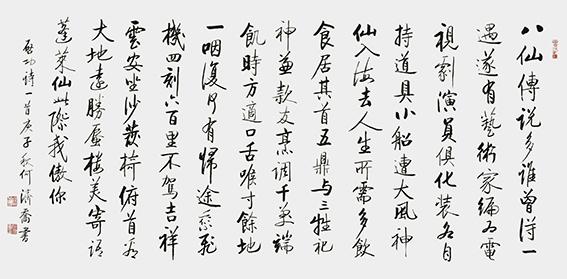 八仙傳說多誰曾得一
遇遂有藝術家編为電
視劇演員俱化裝各自
持道具小船遭大風神
仙入海去人生所需多飲
食居其首五鼎与三牲祀
神兼款友烹調千万端
飢時方適口舌喉寸餘地
一咽復何有歸途乘飛
機四刻六百里不駕吉祥
雲安坐沙發椅俯首看
大地遠勝蜃樓美寄語
蓬萊仙此際我傲你
啟功詩一首庚子秋何濟喬書